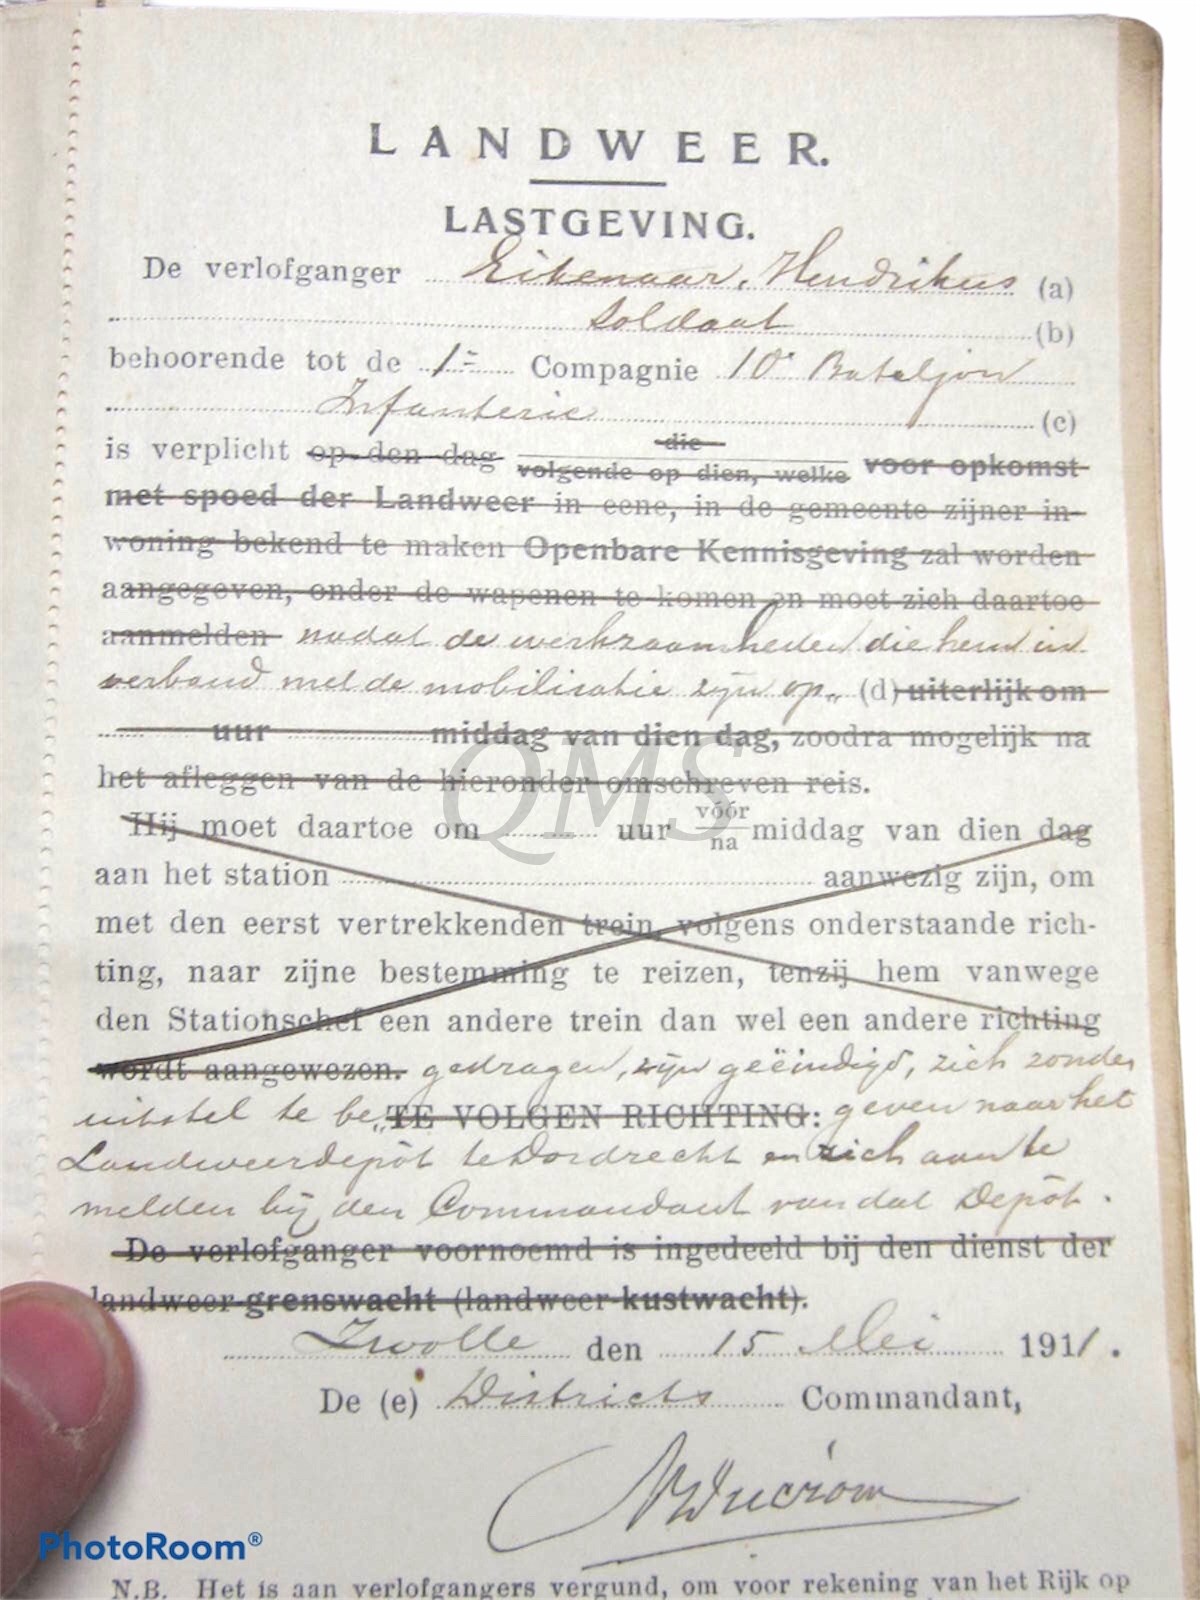 LANDWEER.
LASTGEVING.
De verlofganger Eikenaar, Hendrikus (a)
Soldaat (b)
behoorende tot de 1e Compagnie 10e Bataljon
Infanterie (c)
is verplicht op den dag die volgende op dien, welke voor opkomst
met spoed der Landweer in eene, in de gemeente zijner in-
woning bekend te maken Openbare Kennisgeving zal worden
aangegeven, onder de wapenen te komen en moet zich daartoe
aanmelden nadat de werkzaamheden die hem in
verband met de mobilisatie zijn op„ (d) uiterlijk om
uur middag van dien dag, zoodra mogelijk na
het afleggen van de hieronder omschreven reis.
Hij moet daartoe om uur vóór na middag van dien dag
aan het station aanwezig zijn, om
met den eerst vertrekkenden trein, volgens onderstaande rich-
ting, naar zijne bestemming te reizen, tenzij hem vanwege
den Stationschef een andere trein dan wel een andere richting
wordt aangewezen. gedragen, zijn geëindigd, zich zonder
uitstel te be„ TE VOLGEN RICHTING: geven naar het
Landweerdepôt te Dordrecht en zich aan te
melden bij den Commandant van dat Depôt.
De verlofganger voornoemd is ingedeeld bij den dienst der
landweer-grenswacht (landweer-kustwacht).
Zwolle den 15 Mei 1911.
De (e) Districts Commandant,
N.B. Het is aan verlofgangers vergund, om voor rekening van het Rijk op
QMS
PhotoRoom®